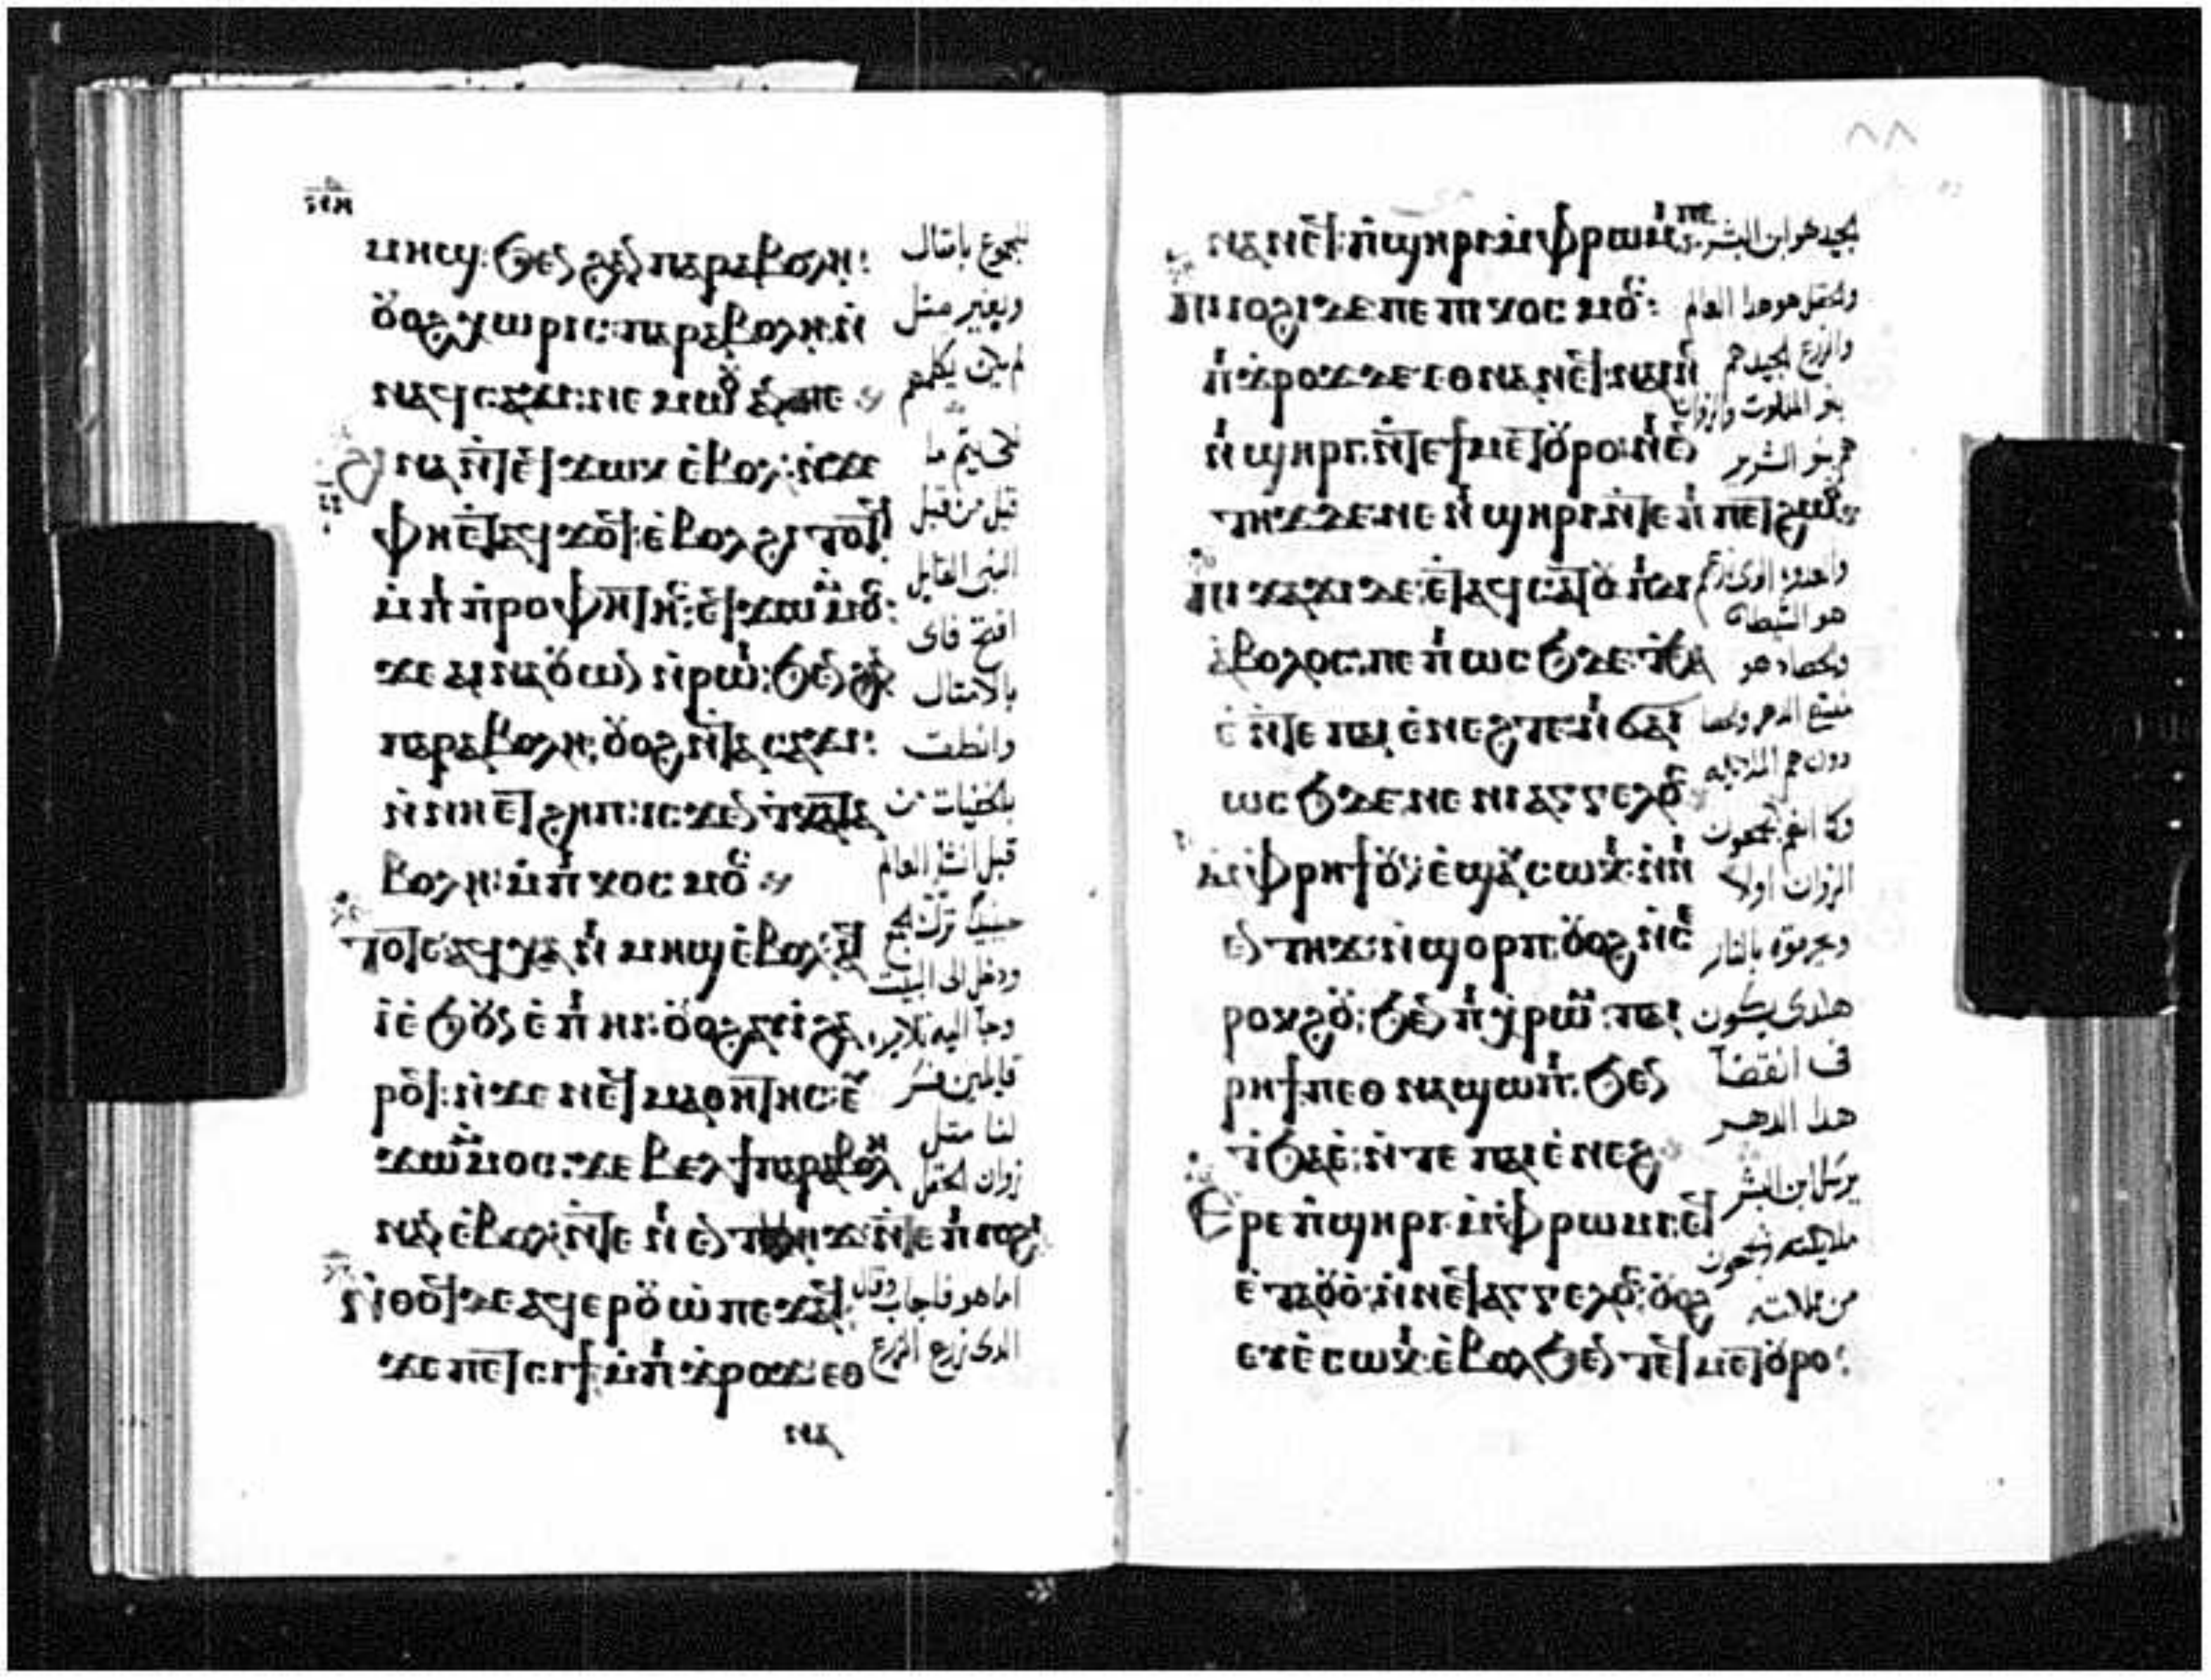 ⲙⲏϣ: ϧⲉⲛ ϩⲁⲛ ⲡⲁⲣⲁⲃⲟⲗⲏ:
ⲟⲩⲟϩ ⲭⲱⲣⲓⲥ: ⲡⲁⲣⲁⲃⲟⲗⲏ: ⲛ̀
ⲛⲁϥⲥⲁϫⲓ: ⲛⲉⲙⲱⲟⲩ ⲁⲛⲡⲉ
ϩⲓⲛⲁ ⲛ̀ⲧⲉϥϫⲱⲕ ⲉ̀ⲃⲟⲗ: ⲛ̀ϫⲉ
ⲫⲏⲉⲧⲁϥϫⲟϥ: ⲉ̀ⲃⲟⲗ ϩⲓⲧⲟⲧϥ
ⲙ̀ⲡⲓ ⲡ̀ⲣⲟⲫⲏⲧⲏⲥ: ⲉϥϫⲱ ⲙ̀ⲙⲟⲥ:
ϫⲉ ⲁⲓⲛⲁⲟⲩⲱⲛ ⲛ̀ⲣⲱⲓ: ϧⲉⲛ ϩⲁⲛ
ⲡⲁⲣⲁⲃⲟⲗⲏ: ⲟⲩⲟϩ ⲛ̀ⲧⲁⲥⲁϫⲓ:
ⲛ̀ⲛⲏⲉⲧϩⲏⲡ: ⲓⲥϫⲉⲛ ⲧ̀ⲕⲁⲧⲁ
ⲃⲟⲗⲏ: ⲙ̀ⲡⲓ ⲕⲟⲥⲙⲟⲥ
ⲧⲟⲧⲉ ⲁϥⲭⲁ ⲛⲓ ⲙⲏϣ ⲉ̀ⲃⲟⲗ: ⲁϥ
ⲓ̀ ⲉ̀ϧⲟⲩⲛ ⲉ̀ⲡⲓ ⲏⲓ: ⲟⲩⲟϩ ⲁⲩⲓ̀ ϩⲁ
ⲣⲟϥ: ⲛ̀ϫⲉ ⲛⲉϥⲙⲁⲑⲏⲧⲏⲥ: ⲉⲩ
ϫⲱ ⲙ̀ⲙⲟⲥ: ϫⲉ ⲃⲉⲗ ϯⲡⲁⲣⲁⲃⲟⲗⲏ
ⲛⲁⲛ ⲉ̀ⲃⲟⲗ: ⲛ̀ⲧⲉ ⲛⲓ ⲉⲛⲧⲏϫ: ⲛ̀ⲧⲉ ⲡⲓ ⲓⲟϩⲓ
ⲛ̀ⲑⲟϥ ϫⲉ ⲁϥⲉⲣⲟⲩⲱ̀ ⲡⲉϫⲁϥ:
ϫⲉ ⲡⲉⲧⲥⲓϯ: ⲙ̀ⲡⲓ ϫ̀ⲣⲟϫ: ⲉⲑ
ⲛⲁ
للجموع بامثال
وبغير مثل
لم يكن يكلمهم
لكى يتم ما
قيل من قبل
النبى القايل
افتح فاى
بالامثال
وانطق
بالخفيات من
قبل انشا العالم
حينيذ ترك الجمع
ودخل الى البيت
وجا اليه تلاميذه
قايلين فسر
لنا مثل
زوان الحقل
اما هو فاجاب وقال
الذى زرع الزرع
٨٨
ⲛⲁⲛⲉϥ: ⲡ̀ϣⲏⲣⲓ ⲙ̀ⲫⲣⲱⲙⲓ ⲡⲉ
ⲡⲓ ⲓⲟϩⲓ ϫⲉ ⲡⲉ ⲡⲓ ⲕⲟⲥⲙⲟⲥ:
ⲡⲓ ϫ̀ⲣⲟϫ ϫⲉ ⲉⲑⲛⲁⲛⲉϥ: ⲛⲁⲓⲛⲉ
ⲛⲓ ϣⲏⲣⲓ: ⲛ̀ⲧⲉ ϯⲙⲉⲧⲟⲩⲣⲟ: ⲛⲓ ⲉⲛ
ⲧⲏϫ ϫⲉ: ⲛⲉ ⲛⲓ ϣⲏⲣⲓ: ⲛ̀ⲧⲉ ⲡⲓ ⲡⲉⲧϩⲱⲟⲩ
ⲡⲓ ϫⲁϫⲓ ϫⲉ: ⲉⲧⲁϥⲥⲁⲧⲟⲩ ⲡⲓⲇⲓ
ⲁ̀ⲃⲟⲗⲟⲥ: ⲡⲉ ⲡⲓ ⲱⲥϧ ϫⲉ: ⲧ̀ϧⲁ
ⲉ̀ ⲛ̀ⲧⲉ ⲡⲁⲓ ⲉ̀ⲛⲉϩ ⲡⲉ: ⲛⲓ ϭⲁⲓ
ⲱⲥϧ ϫⲉ: ⲛⲉ ⲛⲓ ⲁⲅⲅⲉⲗⲟⲥ
ⲙ̀ⲫⲣⲏϯ ⲟⲩⲛ: ⲉ̀ϣⲁⲩⲥⲱⲕⲓ: ⲛ̀ⲛⲓ
ⲉⲛⲧⲏϫ: ⲛ̀ϣⲟⲣⲡ: ⲟⲩⲟϩ ⲛ̀ⲥⲉ
ⲣⲟⲕϩⲟⲩ: ϧⲉⲛ ⲡⲓ ⲭ̀ⲣⲱⲙ: ⲡⲁⲓ
ⲣⲏϯ ⲡⲉⲑ ⲛⲁϣⲱⲡⲓ: ϧⲉⲛ
ⲧ̀ϧⲁⲉ̀: ⲛ̀ⲧⲉ ⲡⲁⲓ ⲉ̀ⲛⲉϩ
ⲉⲣⲉ ⲡ̀ϣⲏⲣⲓ: ⲙ̀ⲫⲣⲱⲙⲓ: ⲉϥ
ⲉ̀ⲧⲁⲟⲩⲟ̀: ⲛ̀ⲛⲉϥⲁⲅⲅⲉⲗⲟⲥ: ⲟⲩⲟϩ
ⲉⲩⲉ̀ⲥⲱⲕⲓ: ⲉ̀ⲃⲟⲗ ϧⲉⲛ ⲧⲉϥⲙⲉⲧⲟⲩⲣⲟ:
الجيد هو ابن البشر
والحقل هو هذا العالم
والزرع الجيد هم
بنو الملكوت والزوان
هم بنو الشرير
والعدو الذى زرعهم
هو الشيطان
والحصاد هو
منتهى الدهر والحصا
دون هم الملايكه
فكما انهم يجمعون
الزوان اولا
ويحرقوه بالنار
هكذى يكون
فى انقضا
هذا الدهر
يرسل ابن البشر
ملايكته ويجمعون
من مملكته